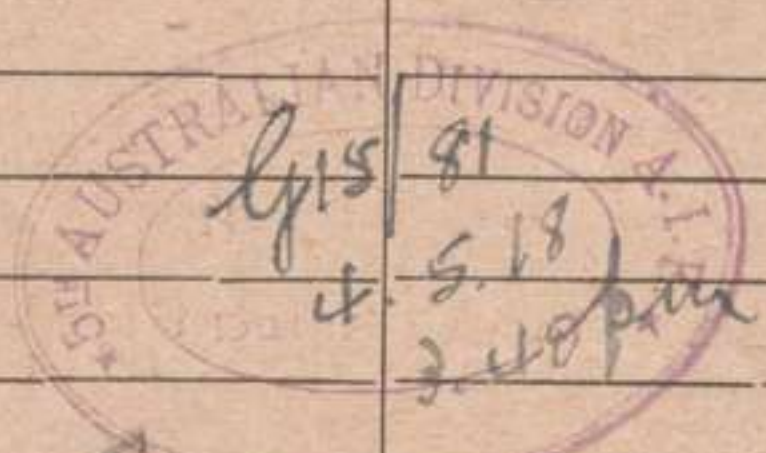 *5TH AUSTRALIAN DIVISION A.I.F.*
G15/81
4.5.18
3.48pm